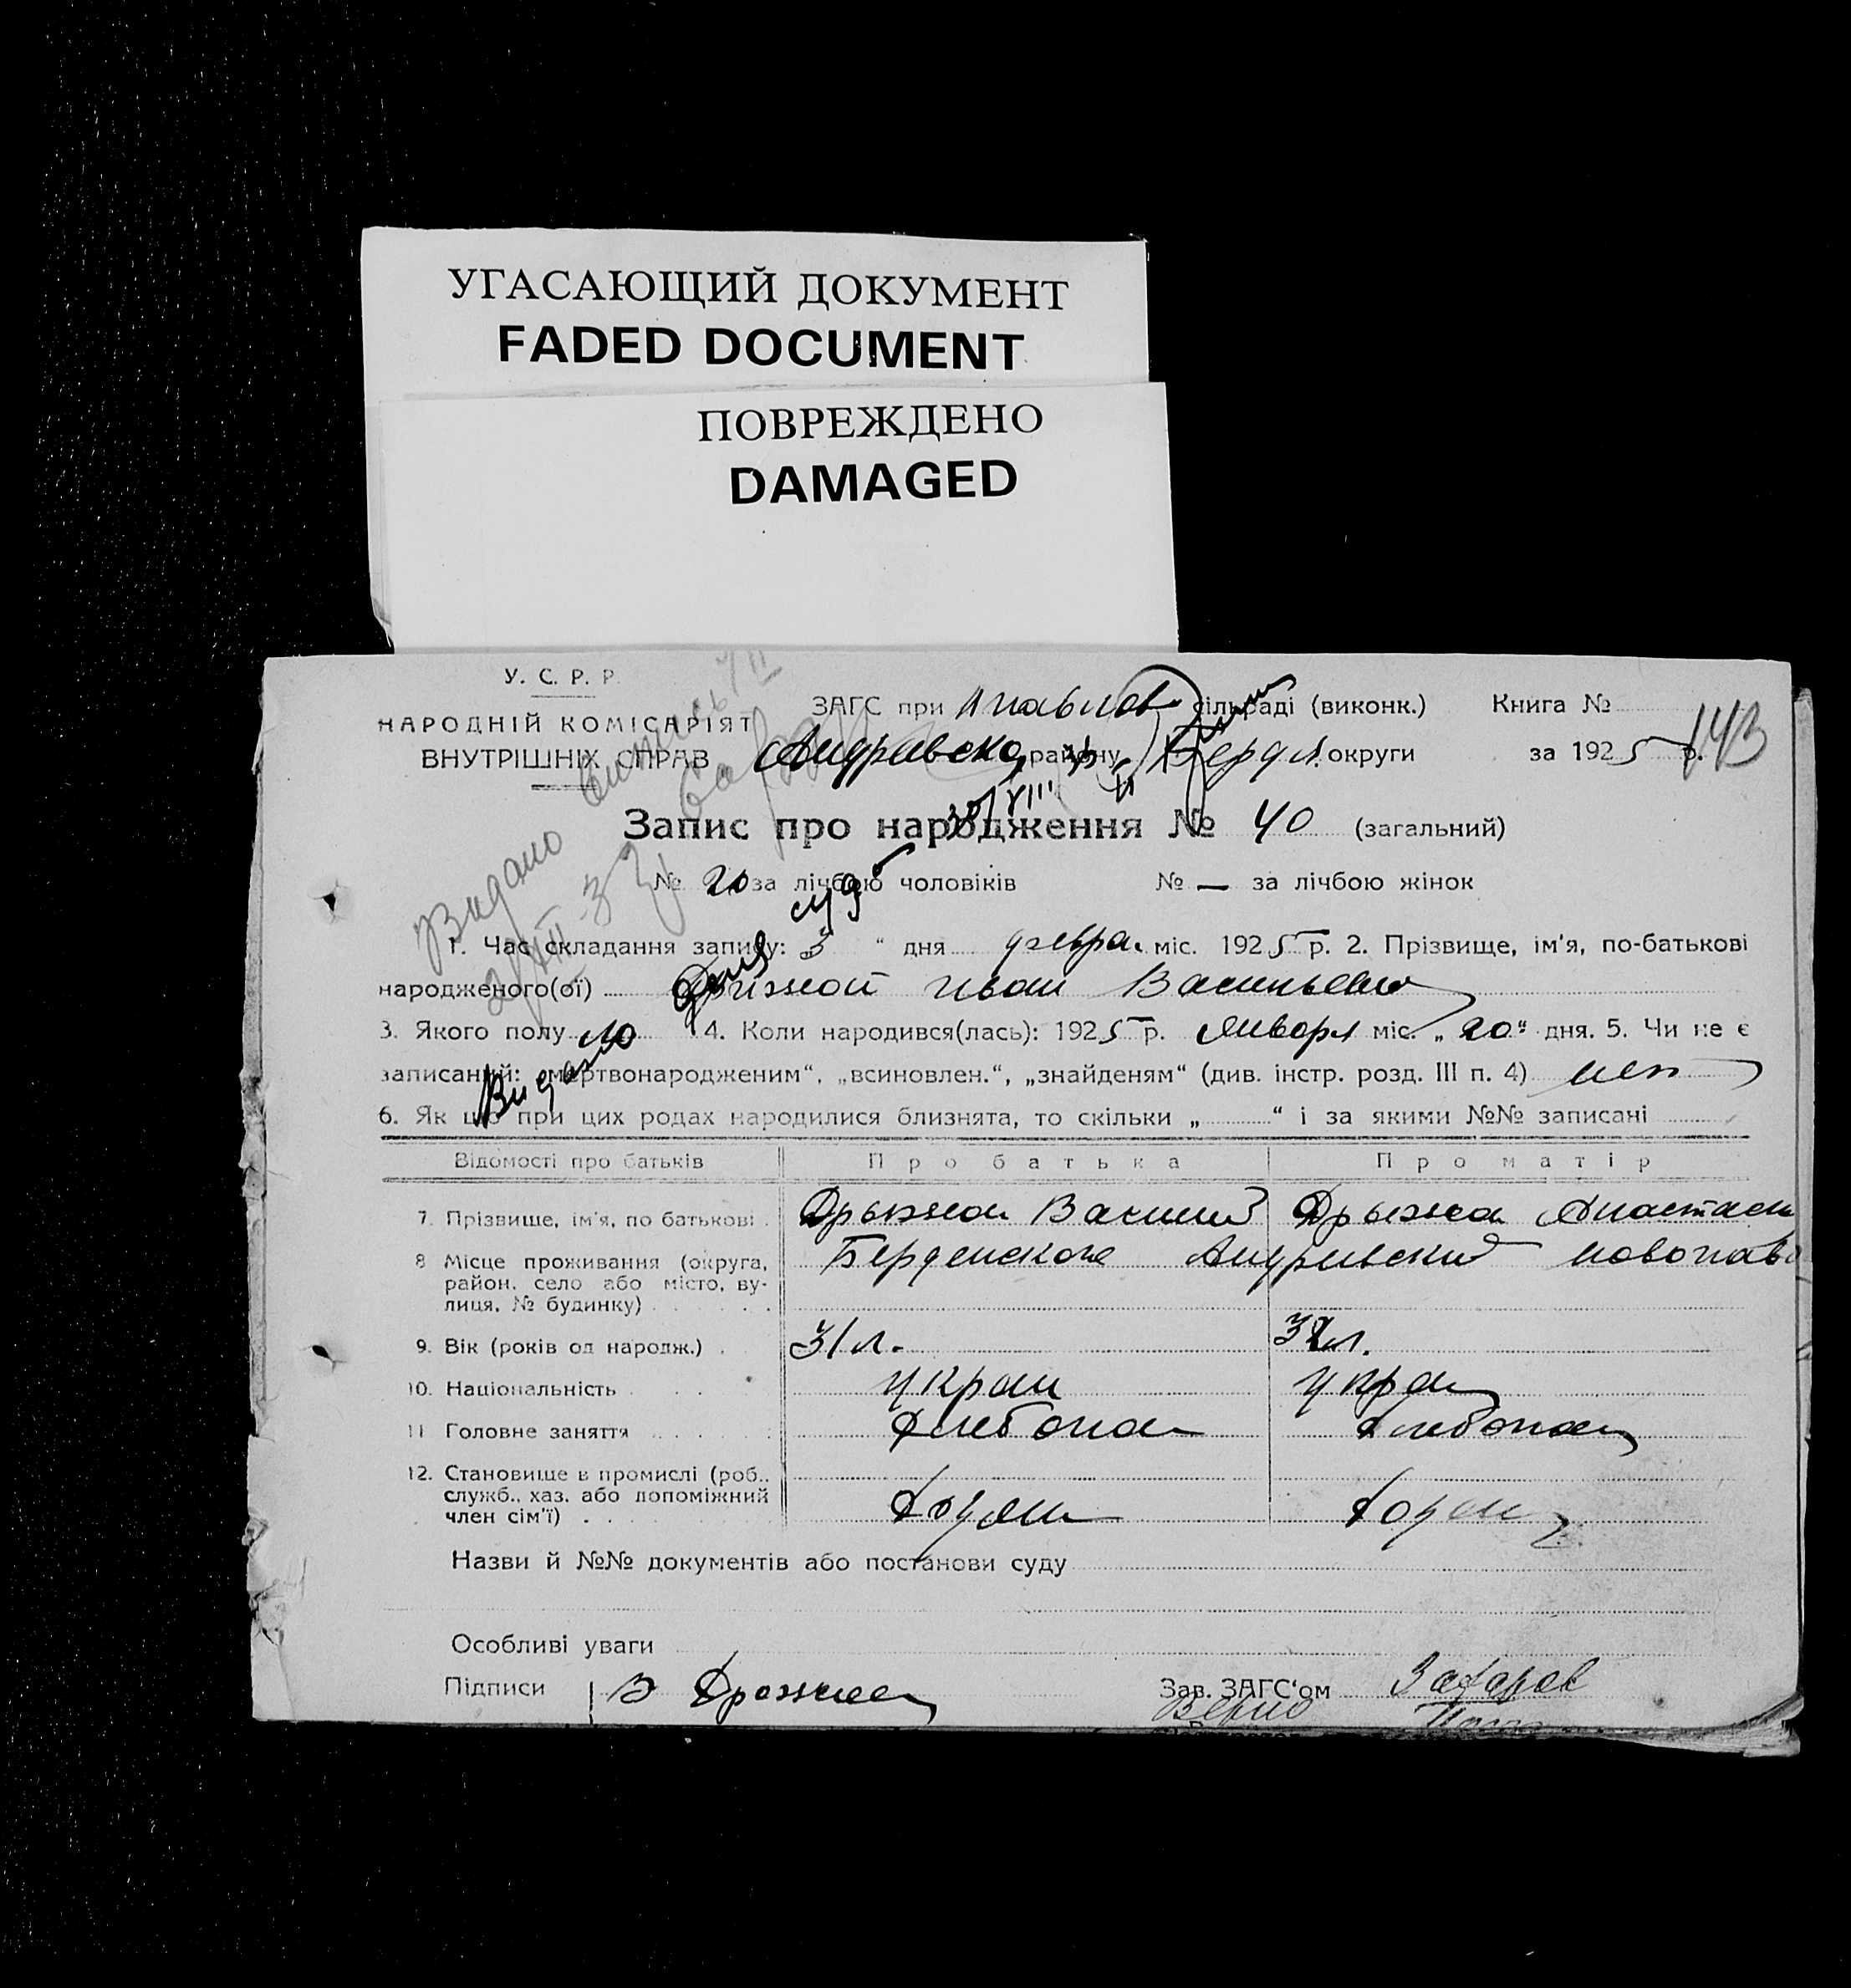 УГАСАЮЩИЙ ДОКУМЕНТ
FADED DOCUMENT
ПОВРЕЖДЕНО
DAMAGED
У. С. Р. Р.
НАРОДНІЙ КОМІСАРІЯТ
ВНУТРІШНІХ СПРАВ
ЗАГС при павлов сільраді (виконк.) Книга №
району Бердя. округи за 1925 р. 143
30/VIII
Запис про народження № 40 (загальний)
№ 20 за лічбою чоловіків № — за лічбою жінок
Видано
1. Час складання запису: 3 " дня февра. міс. 1925 р. 2. Прізвище, ім'я, по-батькові
народженого(ої) Иван Васильев
3. Якого полу 4. Коли народився(лась): 1925 р. Января міс. „ 20 " дня. 5. Чи не є
записаний: „мертвонародженим“, „всиновлен.“, „знайденям“ (див. інстр. розд. III п. 4) нет
Видано
6. Як що при цих родах народилися близнята, то скільки „ “ і за якими №№ записані
Відомості про батьків Про батька Про матір
7. Прізвище, ім'я, по батькові Дрыжак Василий Дрыжак Анастаси
8 Місце проживання (округа, район, село або місто, вулиця, № будинку) Бердянского Андривский новопав
9. Вік (років од народж.) 31 л. 32 л.
10. Національність украи украи
11 Головне заняття хлебопа хлебопа
12. Становище в промислі (роб., служб., хаз. або допоміжний член сім'ї) . хозяи хозяи
Назви й №№ документів або постанови суду
Особливі уваги
Підписи В Зав. ЗАГС'ом Захаров
Верно